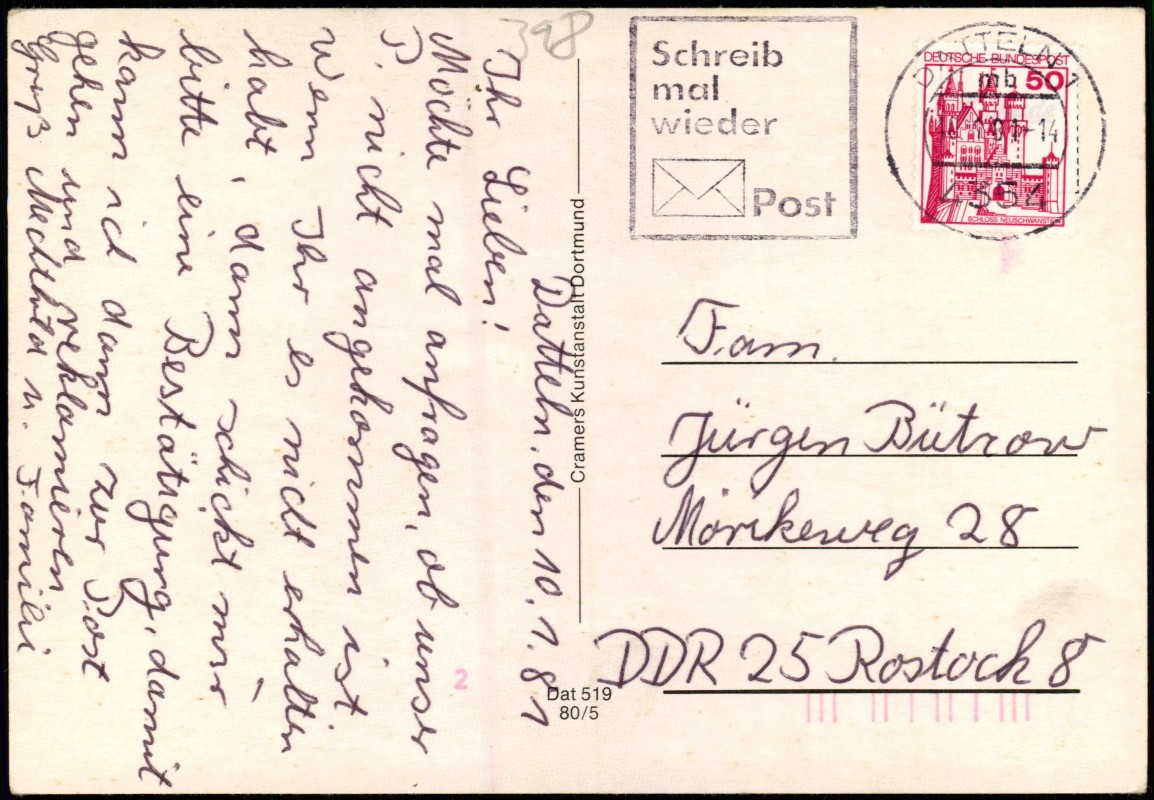 398
Datteln, den 10.1.81
Ihr Lieben!
Möchte mal anfragen, ob unser
P. nicht angekommen ist.
Wenn Ihr es nicht erhalten
habt, dann schickt mir
bitte eine Bestätigung, damit
kann ich dann zur Post
gehen und reklamieren
Gruß Mechthild u. Familie
Cramers Kunstanstalt Dortmund
Dat 519
80/5
2
Schreib
mal
wieder
Post
DATTELN 1
mb
-14
4354
DEUTSCHE BUNDESPOST
50
SCHLOSS NEUSCHWANSTEIN
Fam.
Jürgen Bützow
Mörikeweg 28
DDR 25 Rostock 8